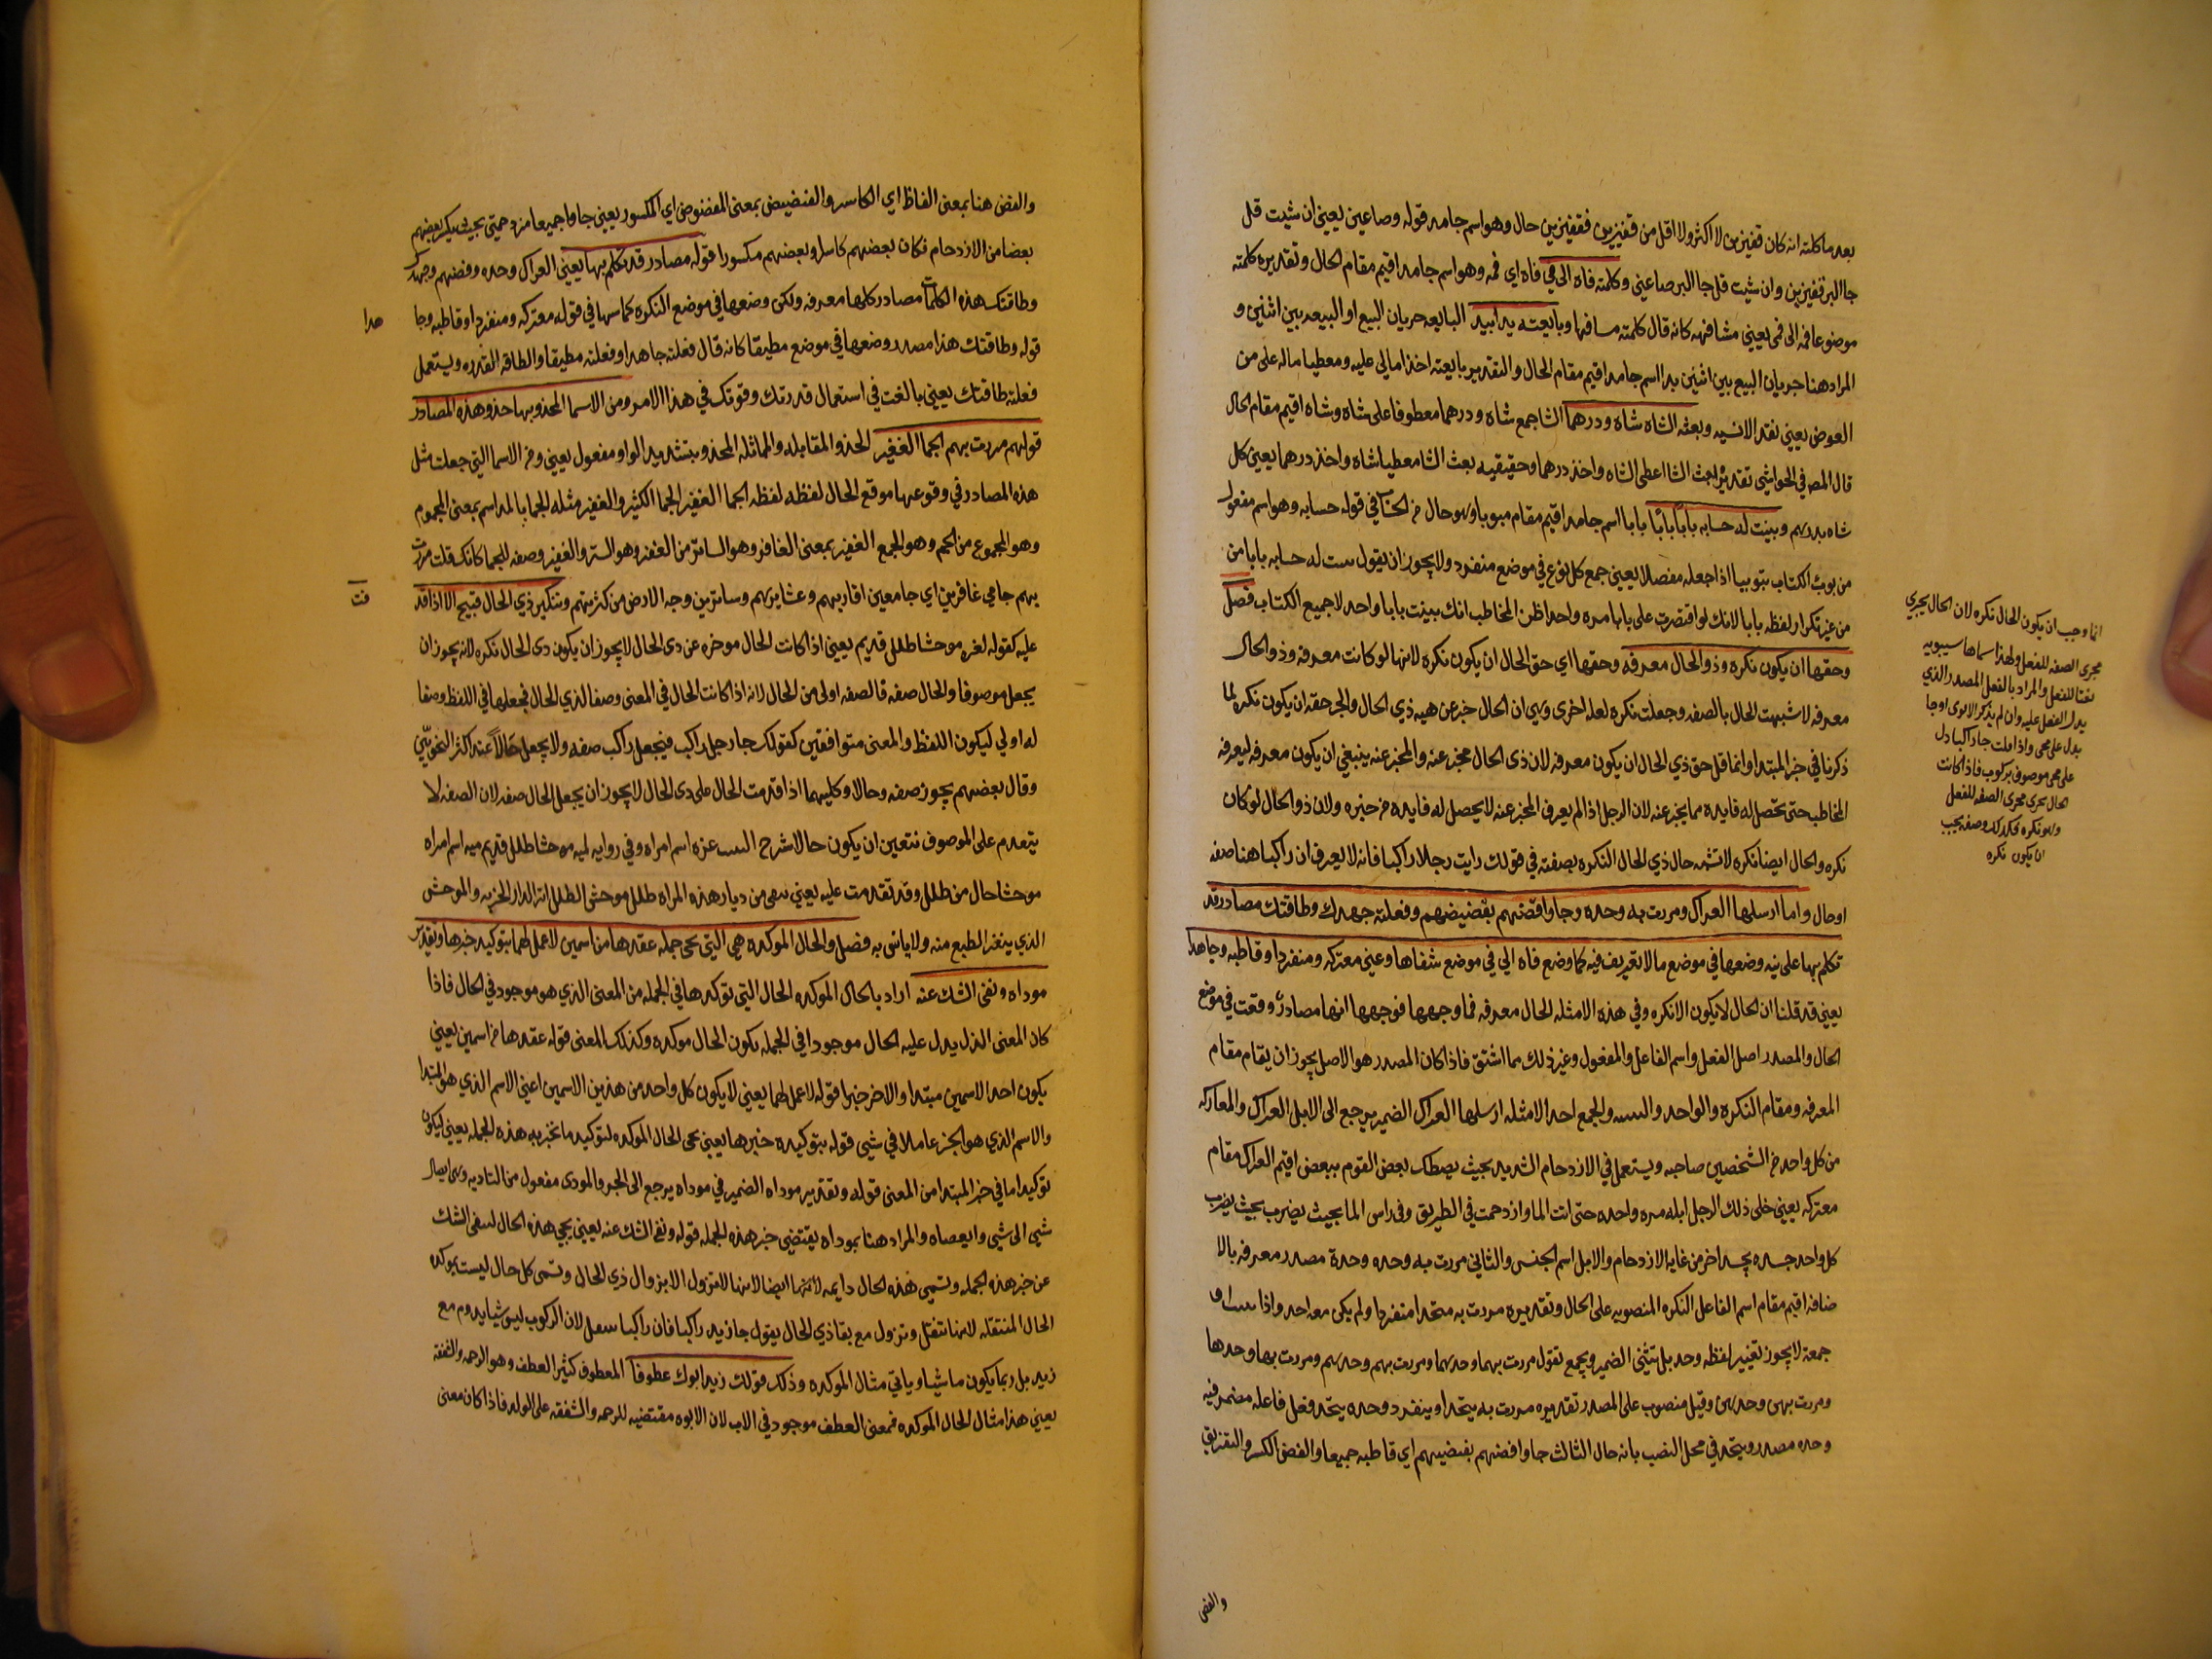 بعد ما كلمته انه كان قفيزين لا اكثر ولا اقل من قفيزين فقفيزين حال وهو اسم جامد قوله وصاعين يعني ان شيت قل
جا البر قفيزين وان شيت قل جا البر صاعين وكلمته فاه الى في فاه اي فمه وهو اسم جامد اقيم مقام الحال وتقديره كلمته
موضوعا فمه الى فمي يعني مشافهه كانه قال كلمته مسافها وبايعته يدا بيد البايعه جريان البيع او البيعه بين اثنين و
المراد هنا جريان البيع بين اثنين يدا اسم جامد اقيم مقام الحال والتقدير بايعته اخذا مالي عليه ومعطيا ماله على من
العوض يعني نقد الانسيه وبعت الشاه شاه ودرهما الشا جمع شاه ودرهما معطوفا على شاه وشاه اقيم مقام الحال
قال المص في الحواشي تقديره بعت الشا اعطى الشاه واخذ درهما وحقيقيه بعت الشا معطيا شاه واخذ درهما يعني كل
شاه بدرهم وبينت له حسابه بابا بابا بابا اسم جامد اقيم مقام مبوبا وهو حال من الحساب في قوله حسابه وهو اسم مفعول
من بوب الكتاب تبويبا اذا جعله مفصلا يعني جمع كل نوع في موضع منفرد ولا يجوز ان يقول بينت له حسابه بابا من
من غير تكرار لفظه بابا لانك لو اقتصرت على بابا مره واحدا ظن المخاطب انك بينت بابا واحد لا جميع الكتاب فصل
وحقها ان يكون نكره وذو الحال معرفه وحقها اي حق الحال ان يكون نكره لانها لو كانت معرفه وذو الحال
معرفه لا شبهت الحال بالصفه وجعلت نكره لعله اخرى وهي ان الحال خبر عن هيه ذي الحال والخبر حقه ان يكون نكره لما
ذكرنا في خبر المبتدا وانما قل حق ذي الحال ان يكون معرفه لان ذى الحال مخبر عنه والمخبر عنه ينبغي ان يكون معرفه ليعرفه
المخاطب حتى تحصل له فايده مما يخبر عنه لان الرجل اذا لم يعرف المخبر عنه لا يحصل له فايده من خبره ولان ذو الحال لو كان
نكره والحال ايضا نكره لا تشبه حال ذي الحال النكره بصفته في قولك رايت رجلا راكبا فانه لا يعرف ان راكبا هنا صفه
او حال واما ارسلها العراك ومررت به وحده وجاوا قضهم بقضيضهم وفعلته جهدك وطاقتك مصادر قد
تكلم بها على نيه وضعها في موضع ما لا تعريف فيه كما وضع فاه الي في موضع شفاها وعني معتركه ومنفردا وقاطبه وجاهدا
يعني قد قلنا ان الحال لا يكون الا نكره وفي هذه الامثله الحال معرفه فما وجهها فوجهها انها مصادر وقعت في موضع
الحال والمصدر اصل الفعل واسم الفاعل والمفعول وغير ذلك مما اشتق فاذا كان المصدر هو الاصل يجوز ان يقام مقام
المعرفه ومقام النكره والواحد والتثنيه والجمع احد الامثله ارسلها العراك الضمير يرجع الى الابل العراك والمعاركه
من كل واحد من الشخصين صاحبه ويستعمل في الازدحام الشديد بحيث يصطك بعض القوم ببعض اقيم العراك مقام
معتركه يعني خلى ذلك الرجل ابله مره واحده حتى اتت الما وازدحمت في الطريق وفي راس الما بحيث يضرب بحيث يضرب
كل واحد جسده بجسد اخر من غايه الازدحام والابل اسم الجنس والثاني مررت به وحده وحدة مصدر معرفه بالا
ضافه اقيم مقام اسم الفاعل النكره المنصوبه على الحال وتقديره مررت به متحدا منفردا ولم يكن معه احد واذا
جمعه لا يجوز تغيير لفظه وحد بل تثنى الضمير ويجمع تقول مررت بهما وحدهما ومررت بهم وحدهم ومررت بها وحدها
ومررت بهن وحدهن وقيل منصوب على المصدر تقديره مررت به يتحد او ينفرد وحده يتحد وفعل فاعله مضمر فيه
وحده مصدر ويتحد في محل النصب بانه حال الثالث جاوا قضهم بقضيضهم اي قاطبه جميعا والقض الكسر والتفريق
والقض
انما وجب ان يكون الحال نكره لان الحال يجري
مجرى الصفه للفعل ولهذا سماها سيبويه
نعتا للفعل والمراد بالفعل المصدر الذي
يدل الفعل عليه وان لم يذكر الا ترى ان جا
يدل على مجى واذا قلت جا راكبا دل
على مجى موصوف بركوب فاذا كانت
الحال يجري مجرى الصفه للفعل
وهو نكره فكذلك وصفه يجب
ان يكون نكره
والقض هنا بمعنى القاض اي الكاسر والقضيض بمعنى المقضوض اي المكسور يعني جاوا جميعا مزدحمتي بحيث يكسر بعضهم
بعضا من الازدحام فكان بعضهم كاسرا وبعضهم مكسورا قوله مصادر قد تكلم بها يعني العراك وحده وقضهم وجهدك
وطاقتك هذه الكلمات مصادر كلها معرفه ولكن وضعها في موضع النكره كما سها في قوله معتركه ومنفردا وقاطبه وجا
هدا
قوله وطاقتك هذا مصدر وضعها في موضع مطيقا كانه قال فعلته جاهدا وفعلته مطيقا والطاقه القدره ويستعمل
فعلته طاقتك يعني بالغت في استعمال قدرتك وقوتك في هذا الامر ومن الاسما المحذو بها حذو هذه المصادر
قولهم مررت بهم الجما الغفير الحذو المقابله والمماثله المحذو بتشديد الواو مفعول يعني ومن الاسما التي جعلت مثل
هذه المصادر في وقوعها موقع الحال لفظه لفظه الجما الغفير الجما الكثير والغفير مثله الجما بالمد اسم بمعنى الجموم
وهو المجموع من الجم وهو الجمع الغفير بمعنى الغافر وهو الساتر من الغفر وهو الستر والغفير وصفه للجما كانك قلت مررت
بهم جامي غافرين اي جامعين اقاربهم وعشايرهم وساترين وجه الارض من كثرتهم وتنكير ذي الحال قبيح الا اذا قد
مت
عليه كقوله لعزه موحشا طلل قديم يعني اذا كانت الحال موخره عن ذى الحال لا يجوز ان يكون ذى الحال نكره لانه يجوز ان
يجعل موصوفا والحال صفه فالصفه اولى من الحال لانه اذا كانت الحال في المعنى وصفا لذي الحال فجعلها في اللفظ وصفا
له اولي ليكون اللفظ والمعنى متوافقين كقولك جا رجل راكب فيجعل راكب صفه ولا يجعل حالا عند اكثر النحويين
وقال بعضهم يجوز صفه وحالا وكليهما اذا قدمت الحال على ذى الحال لا يجوز ان يجعل الحال صفه لان الصفه لا
يتقدم على الموصوف فتعين ان يكون حالا شرح البيت عزه اسم امراه وفي روايه لميه موحشا طلل قديم ميه اسم امراه
موحشا حال من طلل وقد تقدمت عليه يعني بقى من ديار هذه المراه طلل موحش الطلل اثر الدار الخربه والموحش
الذي ينفر الطبع منه ولا يانس به فصل والحال الموكده هي التي تجى جمله عقدها من اسمين لا عمل لهما بتوكيد خبرها وتقدير
موداه ونفى الشك عنه اراد بالحال الموكده الحال التي توكدها في الجمله من المعنى الذي هو موجود في الحال فاذا
كان المعنى الذي يدل عليه الحال موجودا في الجمله يكون الحال موكده وكذلك المعنى قوله عقدها من اسمين يعني
يكون احد الاسمين مبتدا والاخر خبرا قوله لا عمل لهما يعني لا يكون كل واحد من هذين الاسمين اعني الاسم الذي هو المبتدا
والاسم الذي هو الخبر عاملا في شيى قوله بتوكيده خبرها يعني تجى الحال الموكده لتوكيد ما تخبر به هذه الجمله يعني ليكون
توكيدا ما في خبر المبتدا من المعنى قوله وتقدير موداه الضمير في موداه يرجع الى الخبر والمودى مفعول من التاديه وهي ايصال
شيى الى شيى والمراد هنا بموداه يقتضي خبر هذه الجمله قوله ونفى الشك عنه يعني يجي هذه الحال لنفى الشك
عن خبر هذه الجمله وتسمى هذه الحال دايمه لانها ايضا لانها لا تزول الا بزوال ذي الحال وتسمى كل حال ليست بموكده
الحال المنتقله لانها تنتقل وتزول مع بقا ذي الحال يقول جا زيد راكبا فان راكبا ينتقل لان الركوب ليس شيا يدوم مع
زيد بل ربما يكون ماشيا وياتي مثال الموكده وذلك قولك زيد ابوك عطوفا المعطوف كثير العطف وهو الرحمه والشفقه
يعني هذا مثال الحال الموكده فمعنى العطف موجود في الاب لان الابوه مقتضيه للرحمه والشفقه على الولد فاذا كان معنى